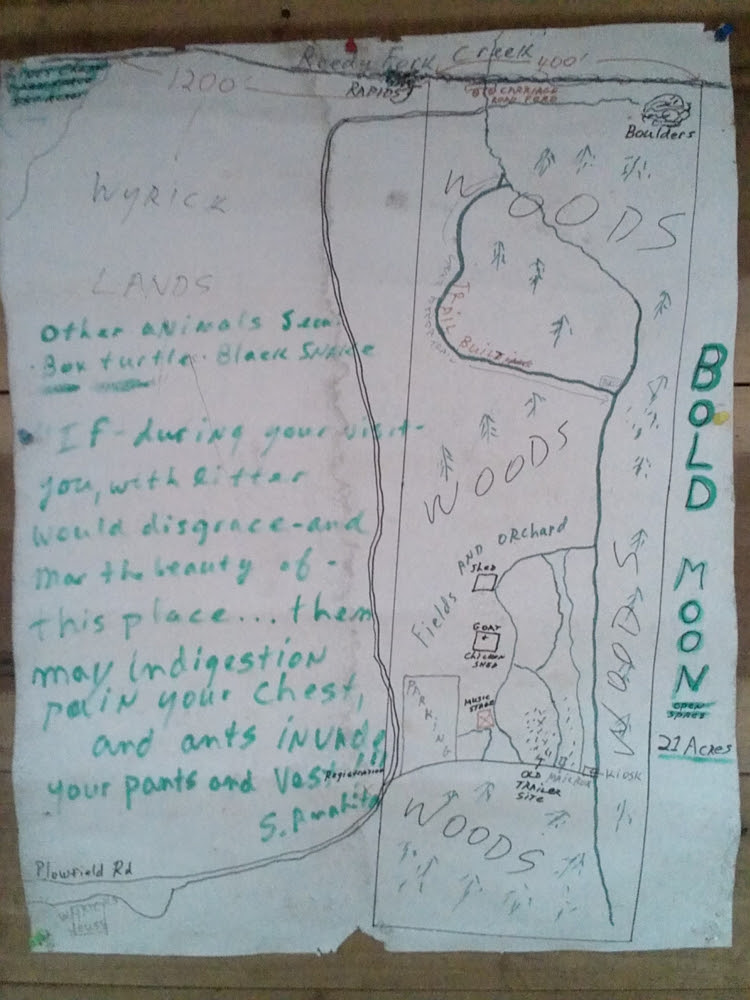 Reedy Fork Creek
1200'
400'
RAPIDS
OLD CARRIAGE
ROAD FORD
Boulders
WYRICK
LANDS
WOODS
TRAIL BUILDING
Other animals seen
Box turtle · Black Snake
If - during your visit -
you, with litter
would disgrace - and
mar the beauty of -
this place... then
may indigestion
pain your chest,
and ants invade
your pants and vest!
WOODS
Fields AND Orchard
SHED
GOAT
+
Chicken
SHED
MUSIC
STAGE
PARKING
WOODS
BOLD MOON
OPEN
SPACES
21 Acres
Registration
OLD
TRAILER
SITE
MAILBOX
KIOSK
WOODS
Plowfield Rd
WYRICKS
House